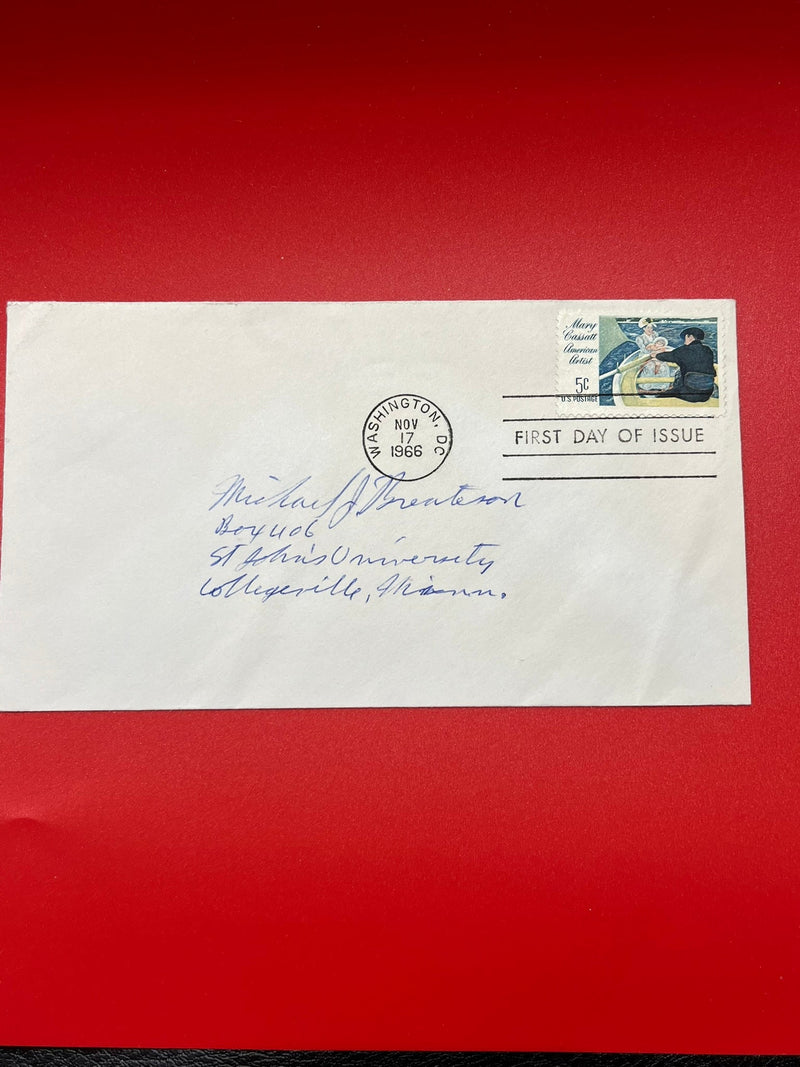 Mary
Cassatt
American
Artist
5c
U.S. POSTAGE
WASHINGTON, DC
NOV
17
1966
FIRST DAY OF ISSUE
Michael J
Box 406
St John's University
Collegeville, Minn.